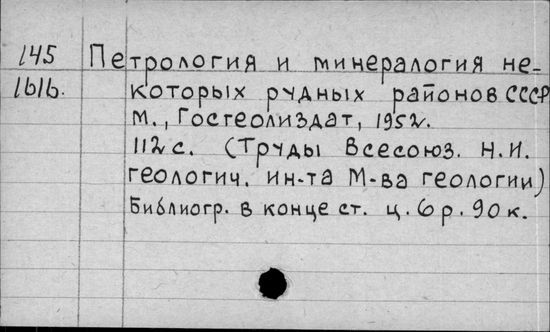 145 Петрология и минералогия не-
1616. которых рудных районов СССР
М., Госгеолиздат, 1952.
112 с. (Труды Всесоюз. Н.И.
геологич. ин-та М-ва геологии)
Библиогр. в конце ст. ц. 6 р. 90 к.